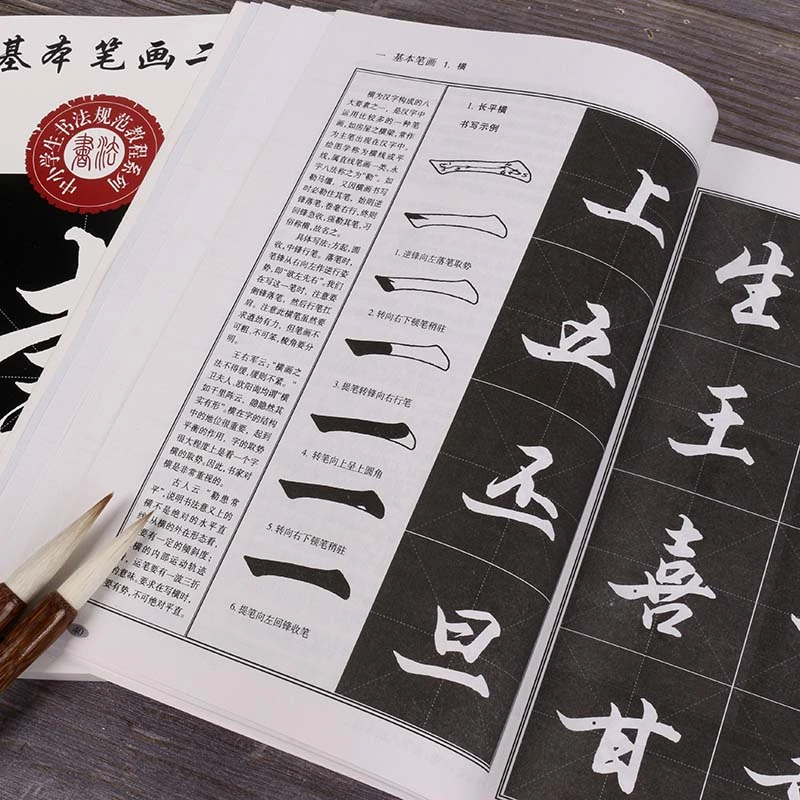 基本笔画二
中小学生书法规范教程系列
書法
一 基本笔画 1. 横
横为汉字构成的八
大要素之一，是汉字中
运用比较多的一种笔
画，如房屋之横梁，常作
为主笔出现在汉字中，
绘图学称为横线或平
线，属直线笔画一类，永
字八法称之为“勒”。如
勒马缰，又因横画书写
时必勒住其笔，始则逆
锋落笔，卷毫右行，终则
回锋急收，强勒其笔，习
俗称横，故名之。
具体写法：方起，圆
收，中锋行笔。落笔时，
笔锋从右向左作逆行姿
势，即“欲左先右”。我们
在写这一笔时，注意要
侧锋落笔，然后行笔扛
肩。注意此横笔虽然要
求遒劲有力，但笔画不
可粗、不可笨，棱角要分
明。
王右军云：“横画之
法不得缓，缓则不紧。”
卫夫人、欧阳询均谓“横
如千里阵云，隐隐然其
实有形”。横在字的结构
中的地位很重要，起到
平衡的作用，字的取势
很大程度上是看一个字
横的取势。因此，书家对
横是非常重视的。
古人云“勒患常
平”，说明书法意义上的
横不是绝对的水平直
从横的外在形态看，
要有一定的倾斜度；
横的内部运动轨迹
，运笔要有一波三折
的意味。要求在写横时，
要有势，不可绝对平直。
40
1. 长平横
书写示例
1. 逆锋向左落笔取势
2. 转向右下顿笔稍驻
3. 提笔转锋向右行笔
4. 转笔向上呈上圆角
5. 转向右下顿笔稍驻
6. 提笔向左回锋收笔
上
五
丕
旦
生
王
喜
甘